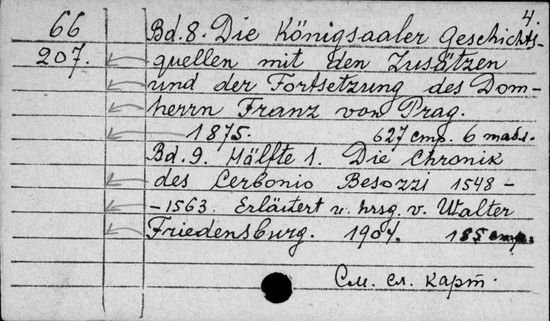 4.
66
207.
Bd. 8. Die Königsaaler Geschichts-
quellen mit den Zusätzen
und der Fortsetzung des Dom-
herrn Franz von Prag.
1875. 627 стр. 6 табл.
Bd. 9. Hälfte 1. Die Chronik
des Cerbonio Besozzi 1548 -
- 1563. Erläutert u. hrsg. v. Walter
Friedensburg. 1904. 185 стр.
См. сл. карт.